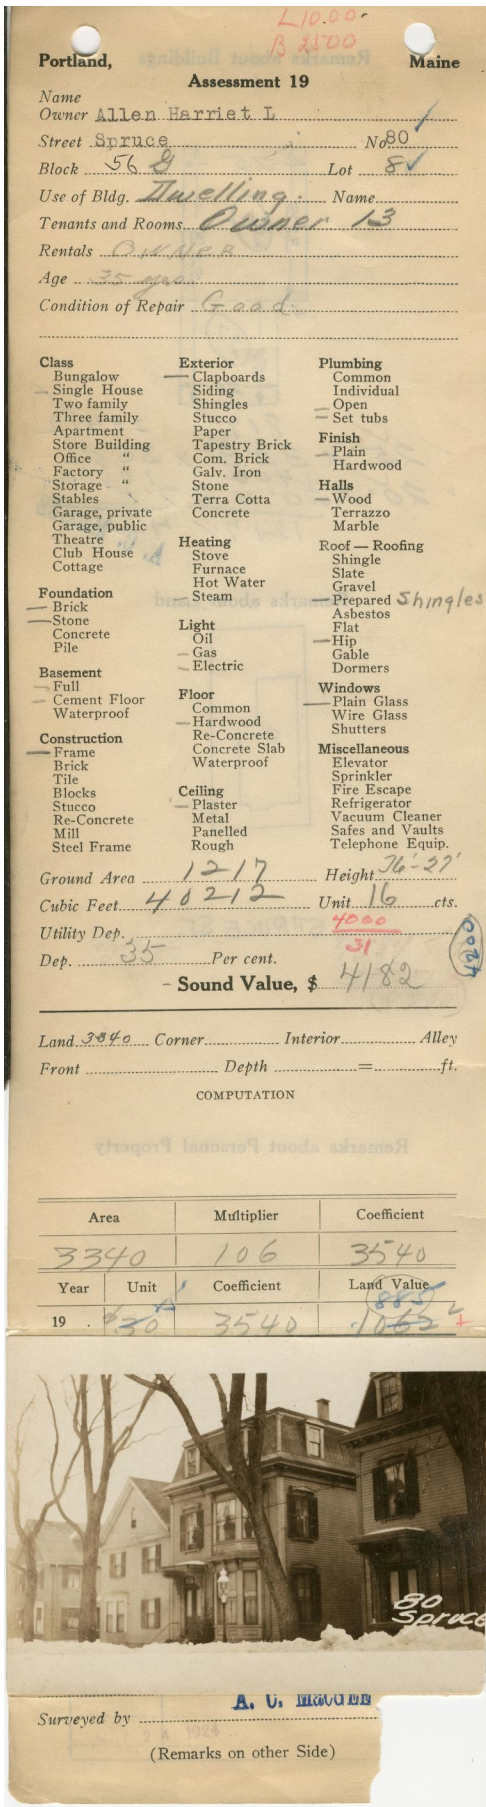 L 10.00
B 2500
Portland, Maine
Assessment 19
Name
Owner Allen Harriet L
Street Spruce No 80
Block 56 G Lot 8 ✓
Use of Bldg. Dwelling. Name
Tenants and Rooms Owner 13
Rentals OWNER
Age 35 yrs.
Condition of Repair Good.
Class
Bungalow
Single House
Two family
Three family
Apartment
Store Building
Office "
Factory "
Storage "
Stables
Garage, private
Garage, public
Theatre
Club House
Cottage
Foundation
Brick
Stone
Concrete
Pile
Basement
Full
Cement Floor
Waterproof
Construction
Frame
Brick
Tile
Blocks
Stucco
Re-Concrete
Mill
Steel Frame
Exterior
Clapboards
Siding
Shingles
Stucco
Paper
Tapestry Brick
Com. Brick
Galv. Iron
Stone
Terra Cotta
Concrete
Heating
Stove
Furnace
Hot Water
Steam
Light
Oil
Gas
Electric
Floor
Common
Hardwood
Re-Concrete
Concrete Slab
Waterproof
Ceiling
Plaster
Metal
Panelled
Rough
Plumbing
Common
Individual
Open
Set tubs
Finish
Plain
Hardwood
Halls
Wood
Terrazzo
Marble
Roof — Roofing
Shingle
Slate
Gravel
Prepared Shingles
Asbestos
Flat
Hip
Gable
Dormers
Windows
Plain Glass
Wire Glass
Shutters
Miscellaneous
Elevator
Sprinkler
Fire Escape
Refrigerator
Vacuum Cleaner
Safes and Vaults
Telephone Equip.
Ground Area 1217 Height
Cubic Feet 40212 Unit 16 cts.
Utility Dep. 4000
31
4200
Dep. 35 Per cent.
Sound Value, $ 4182
Land 3340 Corner Interior Alley
Front Depth = ft.
COMPUTATION
Area Multiplier Coefficient
3340 106 3540
Year Unit Coefficient Land Value
885
19 . 30 3540 1062
80
Spruce
Surveyed by
1924
(Remarks on other Side)
Remarks about Buildings
Remarks about Land
Remarks about Personal Property